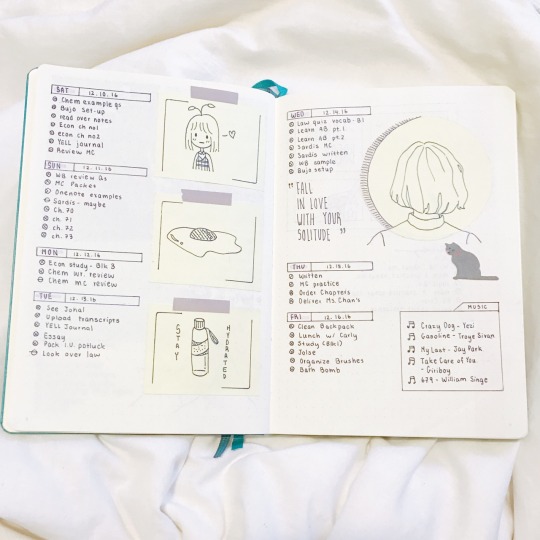 SAT 12.10.16
Chem example qs
Bujo set-up
read over notes
Econ ch no1
econ ch no2
YELL journal
Review MC
SUN 12.11.16
WB review Qs
MC Packet
Onenote examples
Sardis - maybe
Ch. 70
ch. 71
ch. 72
ch. 73
MON 12.12.16
Econ study - Blk 3
Chem wr. review
Chem MC review
TUE 12.13.16
See Jonal
Upload transcripts
YELL Journal
Essay
Pack I.V. potluck
Look over law
STAY HYDRATED
WED 12.14.16
Law quiz vocab - B1
Learn AB pt.1
Learn AB pt.2
Sardis MC
Sardis written
WB sample
Bujo setup
" FALL
IN LOVE
WITH YOUR
SOLITUDE "
THU 12.15.16
Written
MC practice
Order Chapters
Deliver Ms.Chan's
FRI 12.16.16
Clean Backpack
Lunch w/ Carly
Study (Blk1)
Jolse
Organize Brushes
Bath Bomb
MUSIC
Crazy Dog - Yezi
Gasoline - Troye Sivan
My Last - Jay Park
Take Care of You
- Giriboy
679 - William Singe